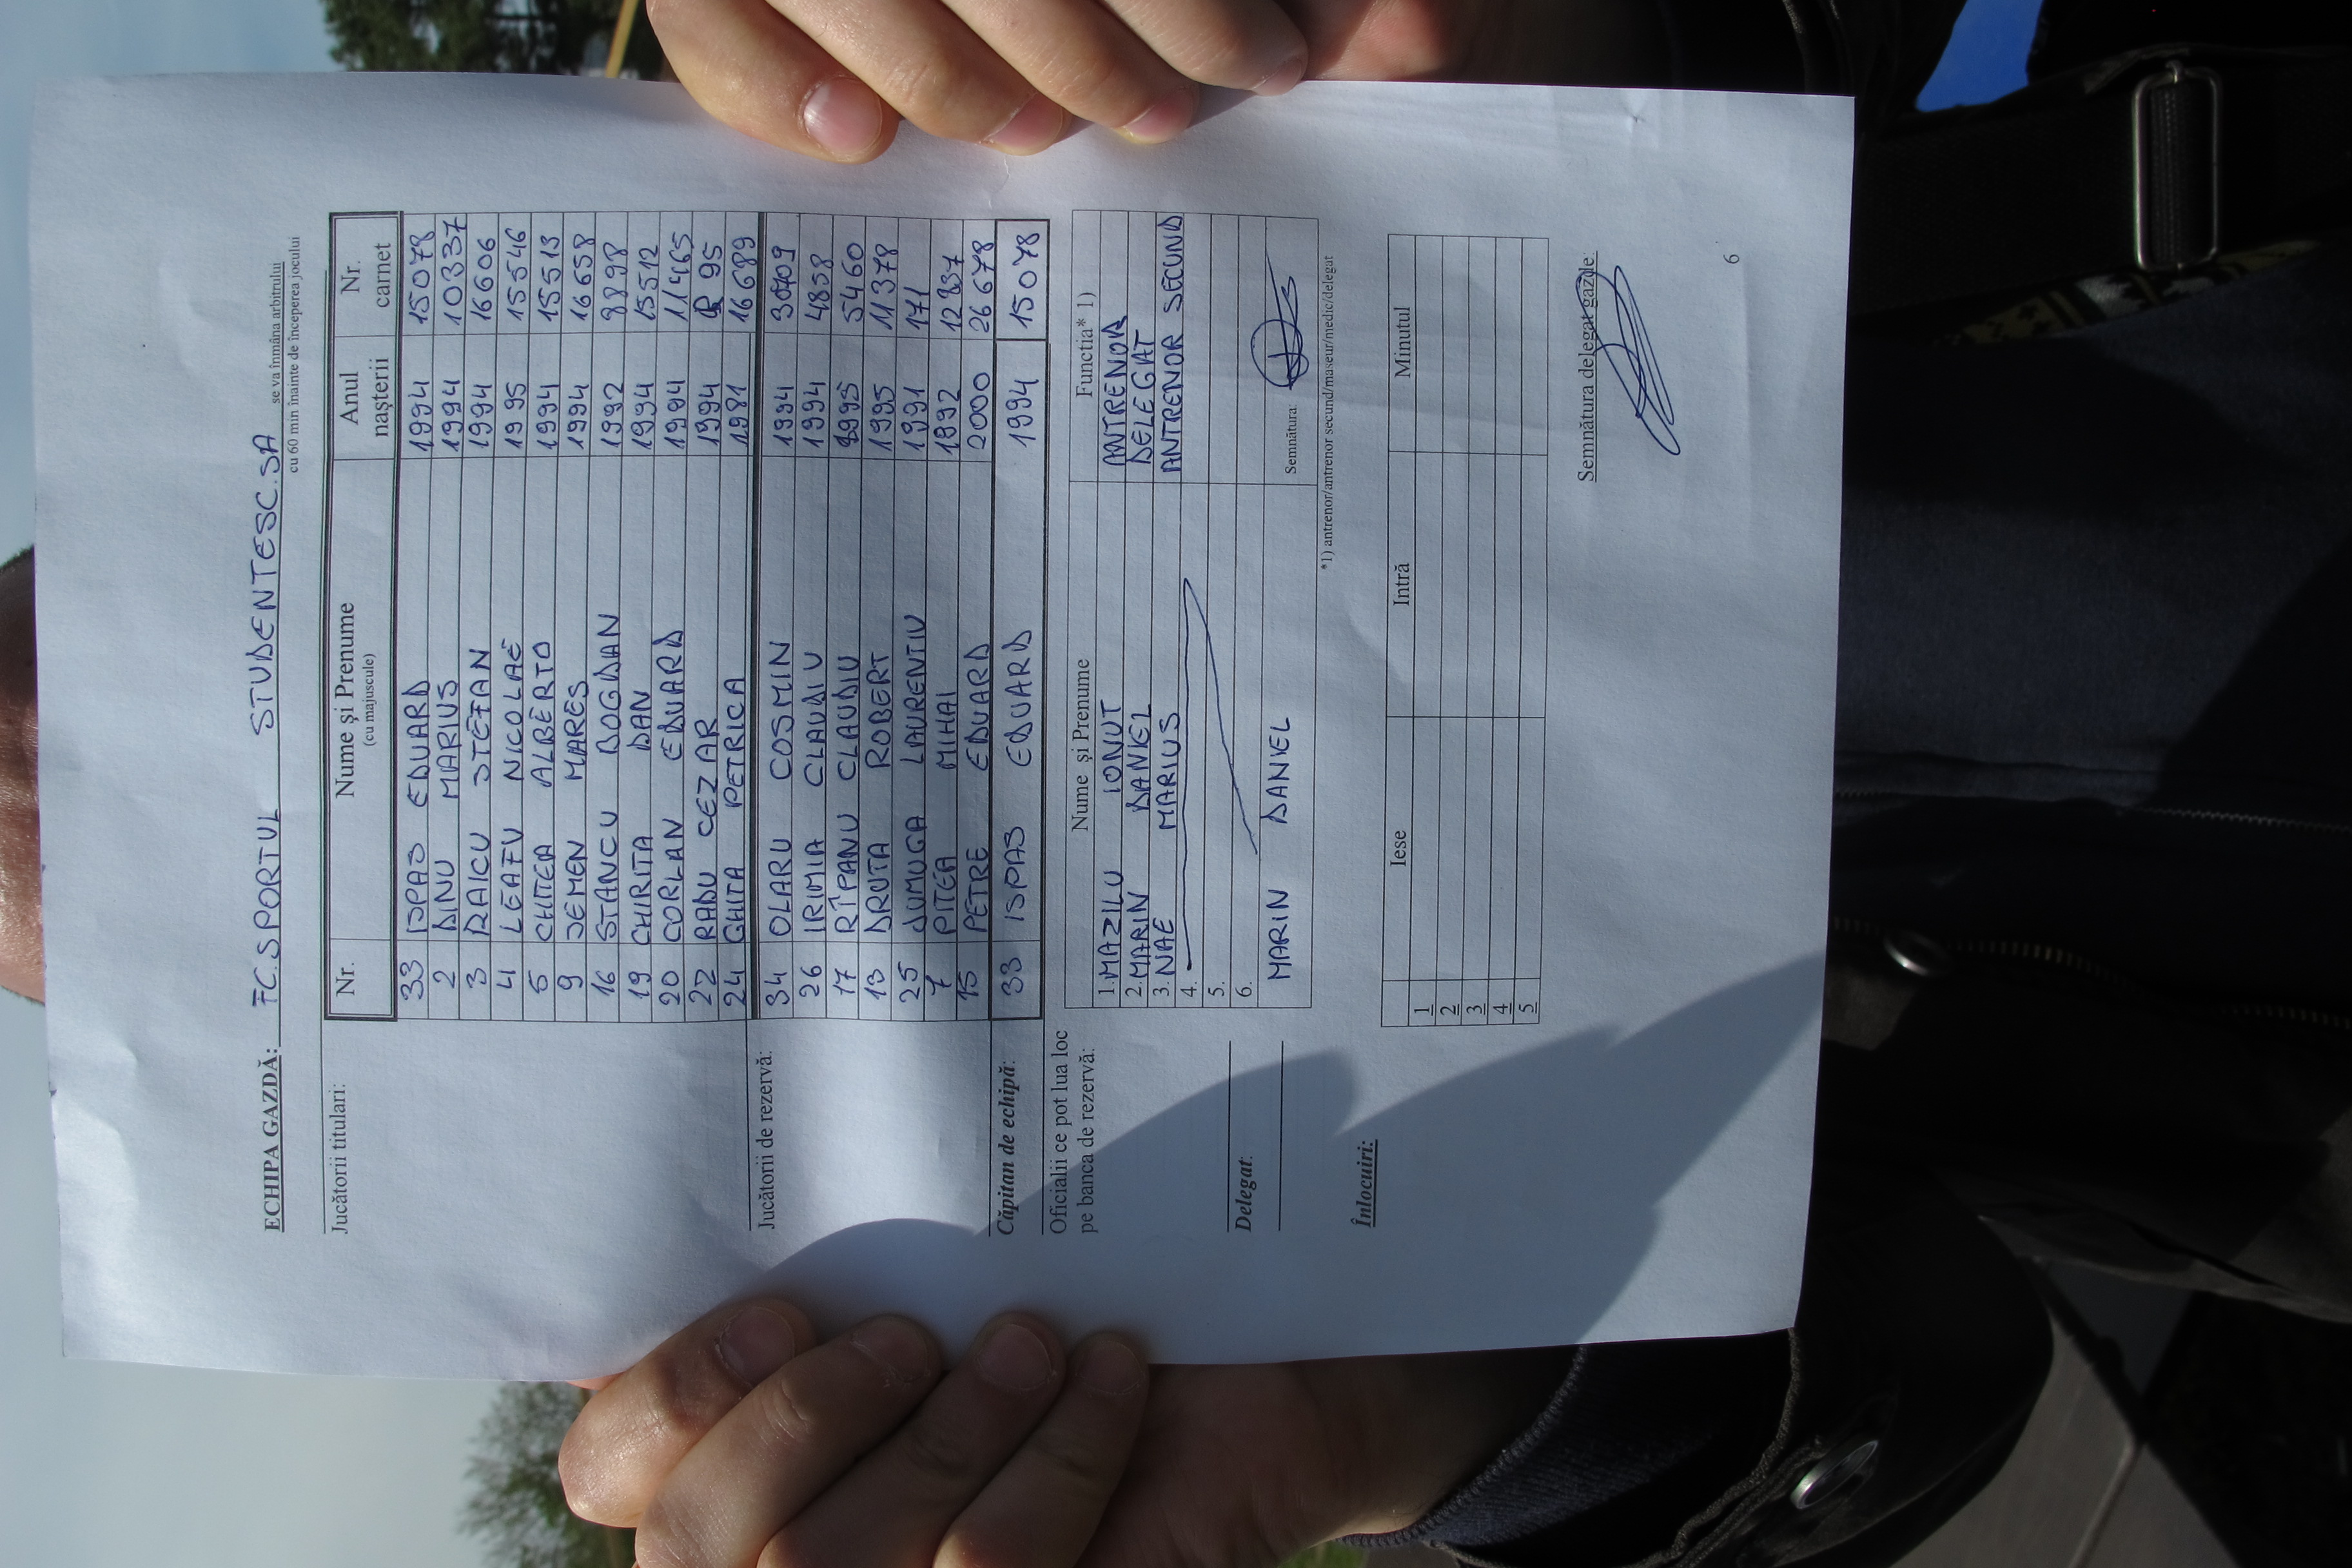 ECHIPA GAZDĂ: FC. SPORTUL STUDENTESC. SA se va înmâna arbitrului
cu 60 min înainte de începerea jocului
Jucătorii titulari:
Nr. Nume și Prenume (cu majuscule) Anul nașterii Nr. carnet
33 ISPAS EDUARD 1994 15078
2 DINU MARIUS 1994 10337
3 RAICU STEFAN 1994 16606
4 LEAFU NICOLAE 1995 15546
5 CHITEA ALBERTO 1994 15513
9 JEMEN MARES 1994 16658
16 STANCU BOGDAN 1992 8898
19 CHIRITA DAN 1994 15512
20 CORLAN EDUARD 1994 11465
22 RADU CEZAR 1994 95
24 GHITA PETRICA 1981 16689
Jucătorii de rezervă:
34 OLARU COSMIN 1994
26 IRIMIA CLAUDIU 1994 4858
17 RÎPANU CLAUDIU 1995 5460
13 DRUTA ROBERT 1995 11378
25 JUMUGA LAURENTIU 1991 171
7 PITEA MIHAI 1992 12837
15 PETRE EDUARD 2000 26678
Căpitan de echipă: 33 ISPAS EDUARD 1994 15078
Oficialii ce pot lua loc
pe banca de rezervă:
Nume și Prenume Functia* 1)
1. MAZILU IONUT ANTRENOR
2. MARIN DANIEL DELEGAT
3. NAE MARIUS ANTRENOR SECUND
4.
5.
6.
Delegat: MARIN DANIEL Semnătura:
*1) antrenor/antrenor secund/maseur/medic/delegat
Înlocuiri:
Iese Intră Minutul
1
2
3
4
5
Semnătura delegat gazde:
6